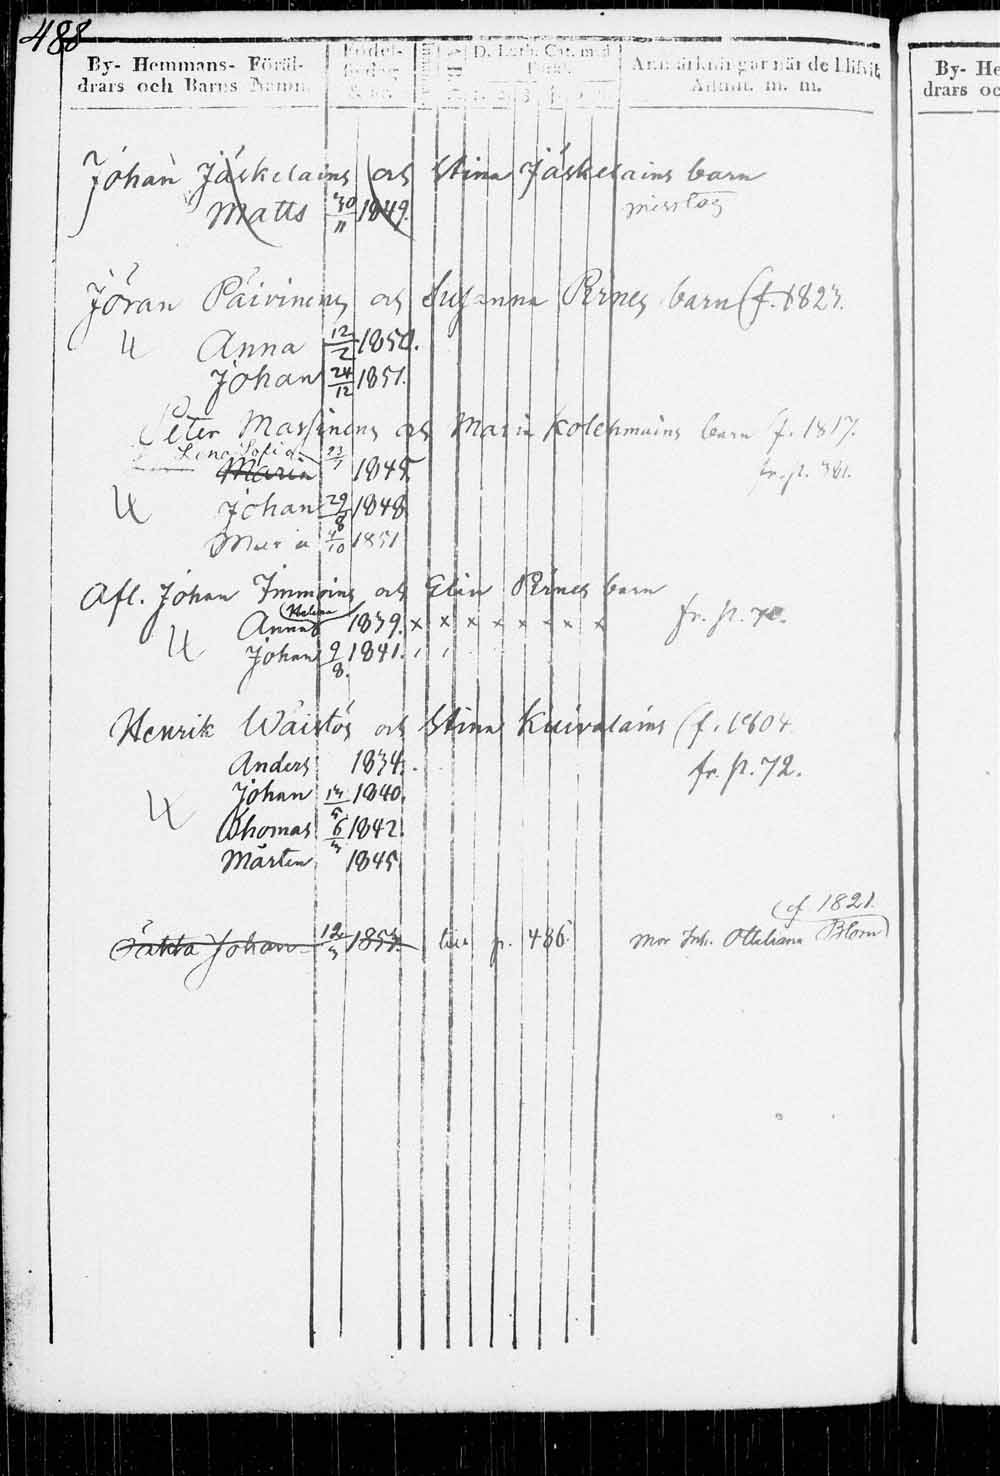 488
By- Hemmans- Föräl-
drars och Barns Namn.
Födel-
D. Luth. Cat. med
Anmärkningar när de blifvit
Admitt. m. m.
By- He
drars oc
Johan Jäskelains och Stina Jäskelains barn
Matts 30/11 1849.
misstag
Jöran Päivinens och Susanna Pirnes barn (f. 1823.
Anna 12/2 1850.
Johan 24/12 1851.
Peter Massinens och Maria Kolehmains barn f. 1817.
Lena Sofia 23/1
Maria 1845.
fr. p. 381.
Johan 29/8 1848
Maria 4/10 1851
Afl. Johan Immoins och Elin Pirnes barn
Helena
Anna 1839. x x x x x x x x
fr. p. 70.
Johan 9/8 1841.
Henrik Wäistös och Stina Kuivalains (f. 1804
Anders 1834.
fr. p. 72.
Johan 13/5 1840.
Thomas 6/3 1842.
Mårten 1845
(f 1821.
Johan 12/3 1853. p. 486.
Mor Inh. Ottiliana Blom